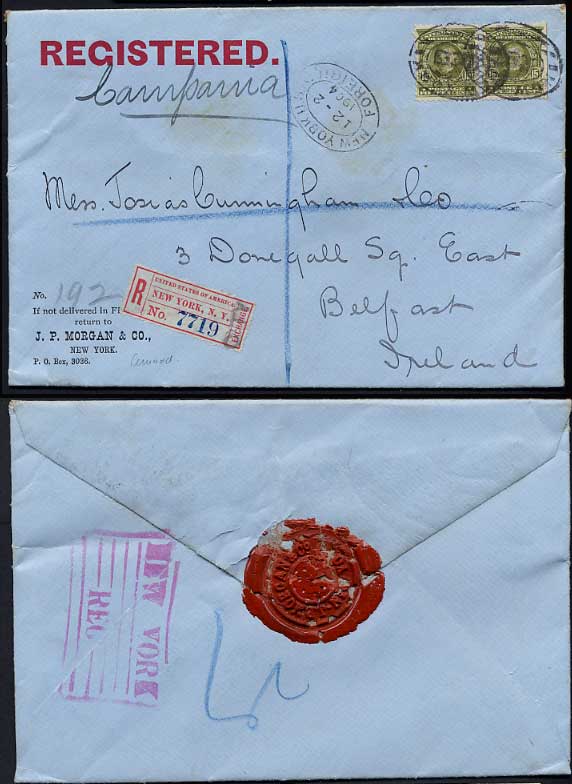 REGISTERED.
Campania
NEW YORK
12-2
1904
FOREIGN
15 15
Mess. Josias Cunningham & Co
3 Donegall Sq. East
Belfast
Ireland
No. 192
If not delivered in FI
return to
J. P. MORGAN & CO.,
NEW YORK.
P. O. Box, 3036.
R
UNITED STATES OF AMERICA
NEW YORK, N. Y.
No. 7719
EXCHANGE
NEW YORK
REG
MORGAN